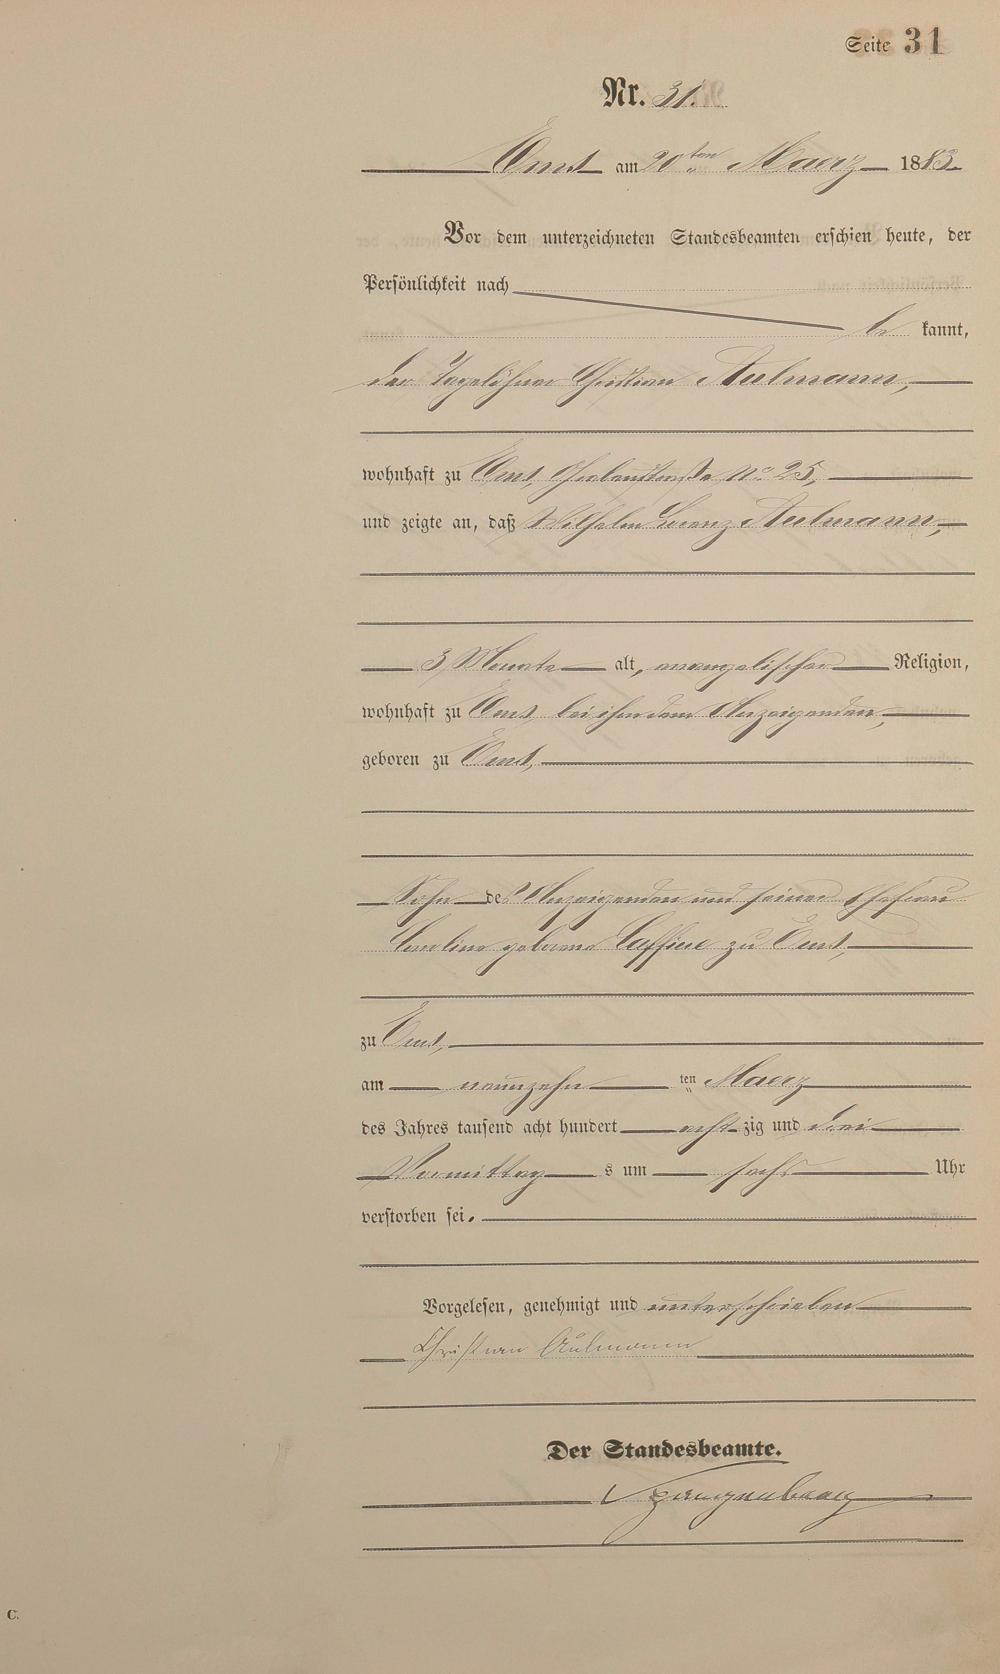 Seite 31
Nr. 31.
Ems am 20ten Maerz 1883.
Vor dem unterzeichneten Standesbeamten erschien heute, der
Persönlichkeit nach
be kannt,
der Tagelöhner Christian Aulmann,
wohnhaft zu Ems, No 25,
und zeigte an, daß Wilhelm Lorenz Aulmann,
3 Monate alt, evangelischer Religion,
wohnhaft zu Ems bei ihm dem Anzeigenden,
geboren zu Ems,
Sohn des Anzeigenden und seiner Ehefrau
geborene zu Ems,
zu Ems,
am neunzehn ten Maerz
des Jahres tausend acht hundert acht zig und drei
Vormittag s um sechs Uhr
verstorben sei.
Vorgelesen, genehmigt und unterschrieben
Christian Aulmann
Der Standesbeamte.
Spangenberg
C.